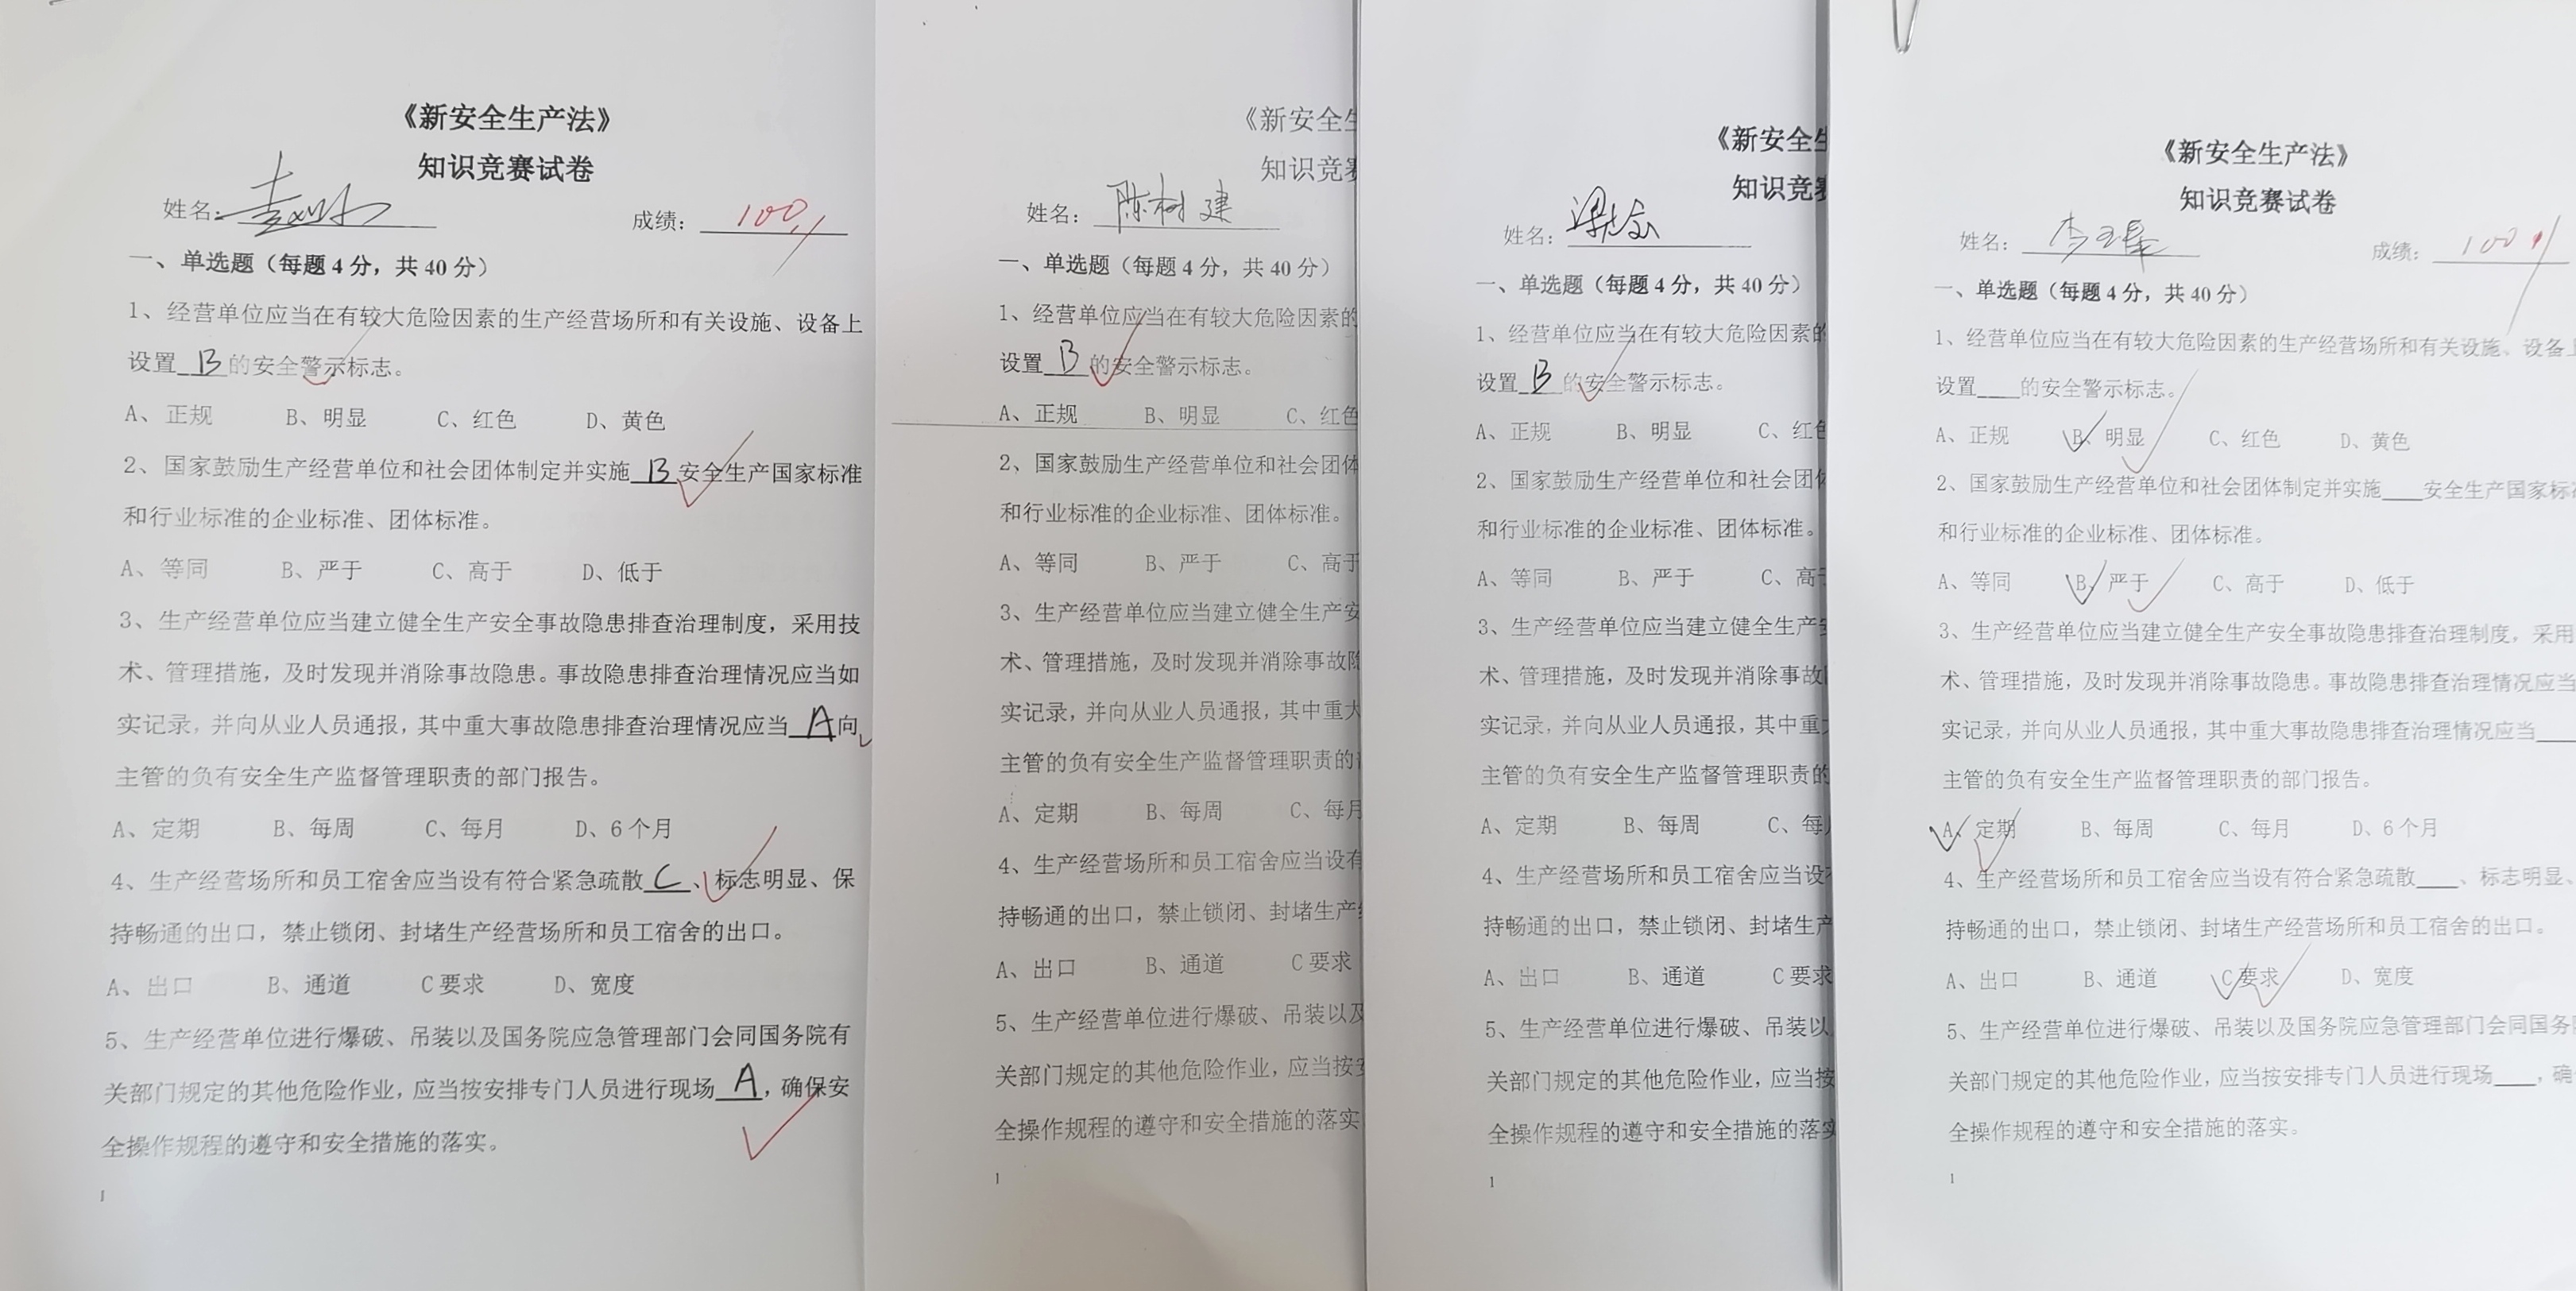 《新安全生产法》
知识竞赛试卷
姓名:
成绩: 100
一、单选题（每题 4 分，共 40 分）
1、经营单位应当在有较大危险因素的生产经营场所和有关设施、设备上
设置 B 的安全警示标志。
A、正规 B、明显 C、红色 D、黄色
2、国家鼓励生产经营单位和社会团体制定并实施 B 安全生产国家标准
和行业标准的企业标准、团体标准。
A、等同 B、严于 C、高于 D、低于
3、生产经营单位应当建立健全生产安全事故隐患排查治理制度，采用技
术、管理措施，及时发现并消除事故隐患。事故隐患排查治理情况应当如
实记录，并向从业人员通报，其中重大事故隐患排查治理情况应当 A 向
主管的负有安全生产监督管理职责的部门报告。
A、定期 B、每周 C、每月 D、6 个月
4、生产经营场所和员工宿舍应当设有符合紧急疏散 C 、标志明显、保
持畅通的出口，禁止锁闭、封堵生产经营场所和员工宿舍的出口。
A、出口 B、通道 C 要求 D、宽度
5、生产经营单位进行爆破、吊装以及国务院应急管理部门会同国务院有
关部门规定的其他危险作业，应当按安排专门人员进行现场 A ，确保安
全操作规程的遵守和安全措施的落实。
1
《新安全生
知识竞
姓名: 陈树建
一、单选题（每题 4 分，共 40 分）
1、经营单位应当在有较大危险因素的
设置 B 的安全警示标志。
A、正规 B、明显 C、红色
2、国家鼓励生产经营单位和社会团体
和行业标准的企业标准、团体标准。
A、等同 B、严于 C、高于
3、生产经营单位应当建立健全生产安
术、管理措施，及时发现并消除事故隐
实记录，并向从业人员通报，其中重大
主管的负有安全生产监督管理职责的
A、定期 B、每周 C、每月
4、生产经营场所和员工宿舍应当设有
持畅通的出口，禁止锁闭、封堵生产
A、出口 B、通道 C 要求
5、生产经营单位进行爆破、吊装以及
关部门规定的其他危险作业，应当按
全操作规程的遵守和安全措施的落实
1
《新安全生
知识竞
姓名:
一、单选题（每题 4 分，共 40 分）
1、经营单位应当在有较大危险因素的
设置 B 的安全警示标志。
A、正规 B、明显 C、红色
2、国家鼓励生产经营单位和社会团体
和行业标准的企业标准、团体标准。
A、等同 B、严于 C、高于
3、生产经营单位应当建立健全生产
术、管理措施，及时发现并消除事故
实记录，并向从业人员通报，其中重
主管的负有安全生产监督管理职责的
A、定期 B、每周 C、每
4、生产经营场所和员工宿舍应当设
持畅通的出口，禁止锁闭、封堵生产
A、出口 B、通道 C 要求
5、生产经营单位进行爆破、吊装以
关部门规定的其他危险作业，应当按
全操作规程的遵守和安全措施的落实
1
《新安全生产法》
知识竞赛试卷
姓名:
成绩: 100
一、单选题（每题 4 分，共 40 分）
1、经营单位应当在有较大危险因素的生产经营场所和有关设施、设备上
设置____的安全警示标志。
A、正规 B、明显 C、红色 D、黄色
2、国家鼓励生产经营单位和社会团体制定并实施____安全生产国家标
和行业标准的企业标准、团体标准。
A、等同 B、严于 C、高于 D、低于
3、生产经营单位应当建立健全生产安全事故隐患排查治理制度，采用
术、管理措施，及时发现并消除事故隐患。事故隐患排查治理情况应当
实记录，并向从业人员通报，其中重大事故隐患排查治理情况应当____
主管的负有安全生产监督管理职责的部门报告。
A、定期 B、每周 C、每月 D、6 个月
4、生产经营场所和员工宿舍应当设有符合紧急疏散____、标志明显、
持畅通的出口，禁止锁闭、封堵生产经营场所和员工宿舍的出口。
A、出口 B、通道 C 要求 D、宽度
5、生产经营单位进行爆破、吊装以及国务院应急管理部门会同国务
关部门规定的其他危险作业，应当按安排专门人员进行现场____，确
全操作规程的遵守和安全措施的落实。
1